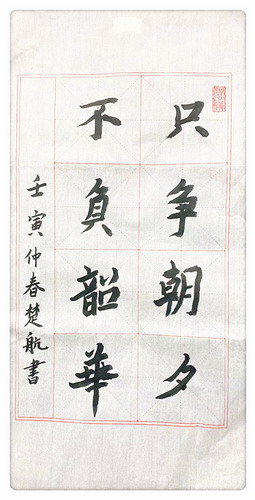 只争朝夕
不負韶華
壬寅仲春楚航書